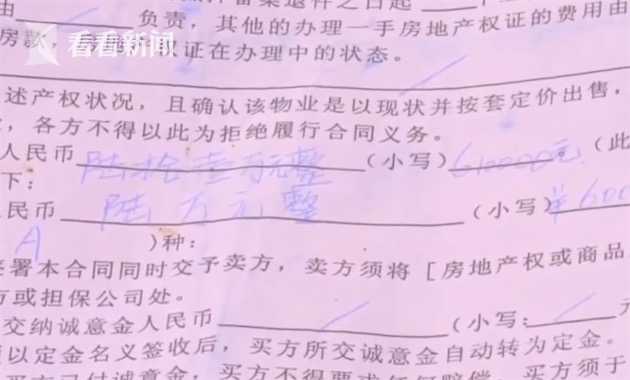 由 负责，其他的办理一手房地产权证的费用由
房款， 权证在办理中的状态。
看看新闻
述产权状况，且确认该物业是以现状并按套定价出售，
，各方不得以此为拒绝履行合同义务。
人民币 陆拾壹万元整 （小写）610000元 （此
下：
民币 陆万元整 （小写）¥600
A ）种：
签署本合同同时交予卖方，卖方须将［房地产权或商品
方或担保公司处。
交纳诚意金人民币 （小写： 元
以定金名义签收后，买方所交诚意金自动转为定金。
买方已付诚意金，买方不得要求任何赔偿，买方须于